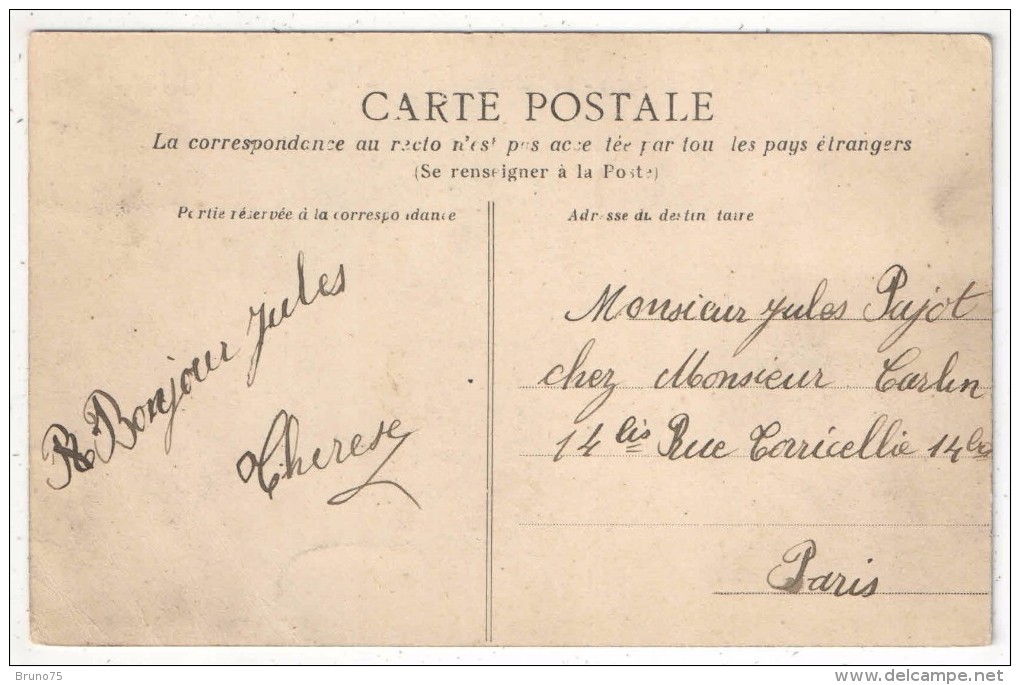 CARTE POSTALE
La correspondance au recto n'est pas acceptée par tous les pays étrangers
(Se renseigner à la Poste)
Partie réservée à la correspondance
Adresse du destinataire
Bonjour Jules
Therese
Monsieur Jules Pujot
chez Monsieur Carlin
14 bis Rue Torricellie 14 bis
Paris
Bruno75
www.delcampe.net